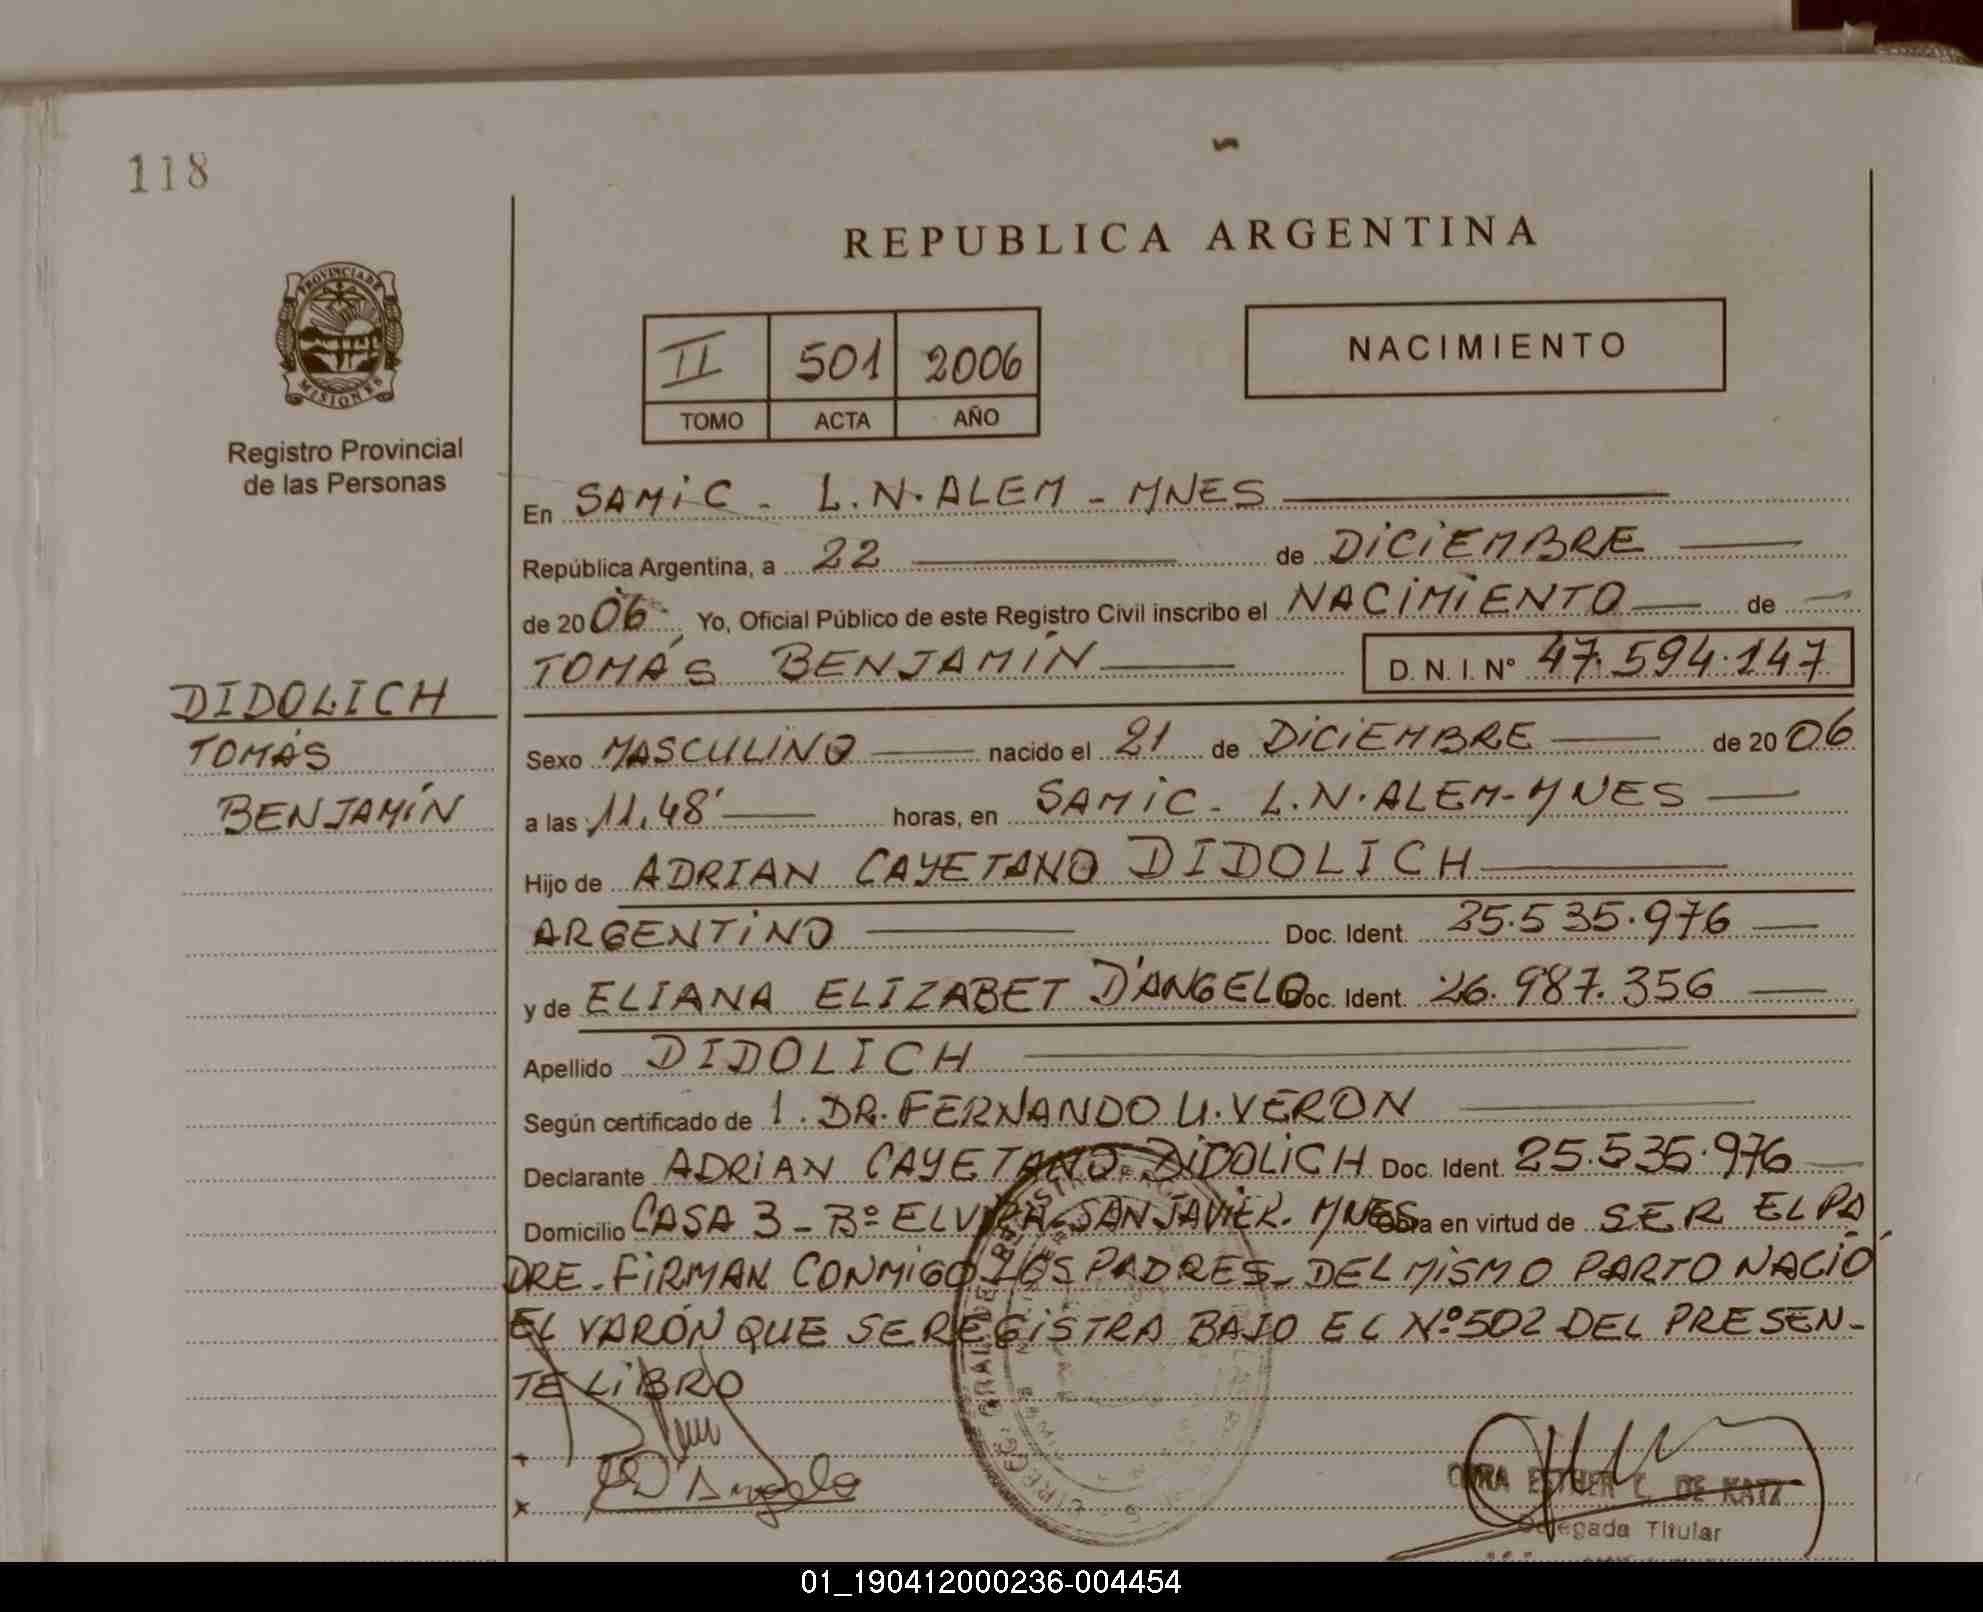 118
REPUBLICA ARGENTINA
PROVINCIA DE
MISIONES
Registro Provincial
de las Personas
II 501 2006
TOMO ACTA AÑO
NACIMIENTO
En SAMIC - L.N. ALEM - MNES
República Argentina, a 22 de DICIEMBRE
de 2006 Yo, Oficial Público de este Registro Civil inscribo el NACIMIENTO de
TOMÁS BENJAMÍN D.N.I. Nº 47.594.147
DIDOLICH
TOMÁS
BENJAMÍN
Sexo MASCULINO nacido el 21 de DICIEMBRE de 2006
a las 11,48' horas, en SAMIC - L.N. ALEM - MNES
Hijo de ADRIAN CAYETANO DIDOLICH
ARGENTINO Doc. Ident. 25.535.976
y de ELIANA ELIZABET D'ANGELO Doc. Ident. 26.987.356
Apellido DIDOLICH
Según certificado de 1. DR. FERNANDO U. VERON
Declarante ADRIAN CAYETANO DIDOLICH Doc. Ident. 25.535.976
Domicilio CASA 3 - Bº ELVIRA - SAN JAVIER. MNES Obra en virtud de SER EL PA
DRE. FIRMAN CONMIGO LOS PADRES. DEL MISMO PARTO NACIÓ
EL VARÓN QUE SE REGISTRA BAJO EL Nº 502 DEL PRESEN-
TE LIBRO
D'Angelo
ESTHER C. DE KATZ
Delegada Titular
01_190412000236-004454